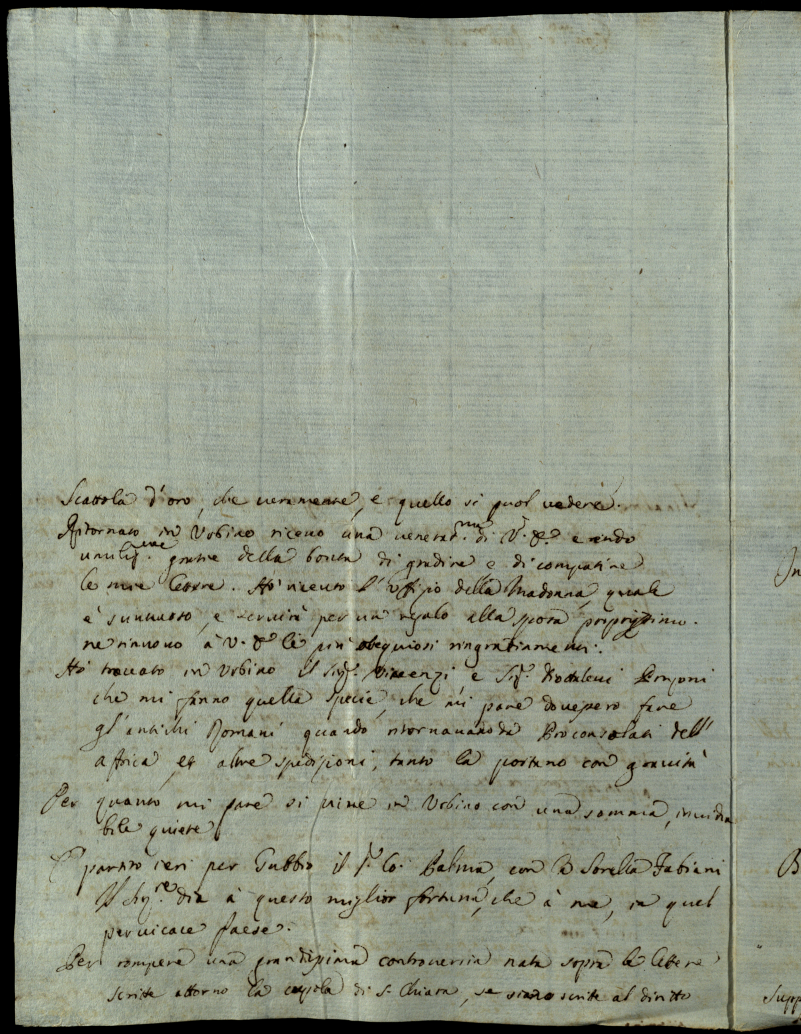 Scattola d'oro, che veramente, e quello si puol vedere.
Ritornato in Urbino ricevo una venerat.ma di V. E.a e rendo
umiliss.me gratie della bontà di gradire e di compatire
le mie lettere. Hò ricevuto l'Uffizio della Madonna, quale
è suntuoso, e servirà per un regalo alla sposa
ne rinuovo à V. E.a le più obsequiosi ringratiamenti.
Hò trovato in Urbino il Sig.r Vincenzi e Sig.r Bonzoni
che mi fanno quella specie, che mi pare dovessero fare
gl'antichi Romani quando ritornavano da Proconsolati dell'
Affrica, et altre spedizioni, tanto la portano con gravità
Per quanto mi pare si vive in Urbino con una somma, invidia
bile quiete
È partito ieri per Gubbio il S.r Co. Palma, con D. Sorella Fabiani
dia à questo miglior fortuna, che à me, in quel
pervicace paese.
Per rompere una grandissima controversia nata sopra le lettere
scritte attorno la cupola di S. Chiara, se siano scritte al diritto
In
B
Supp